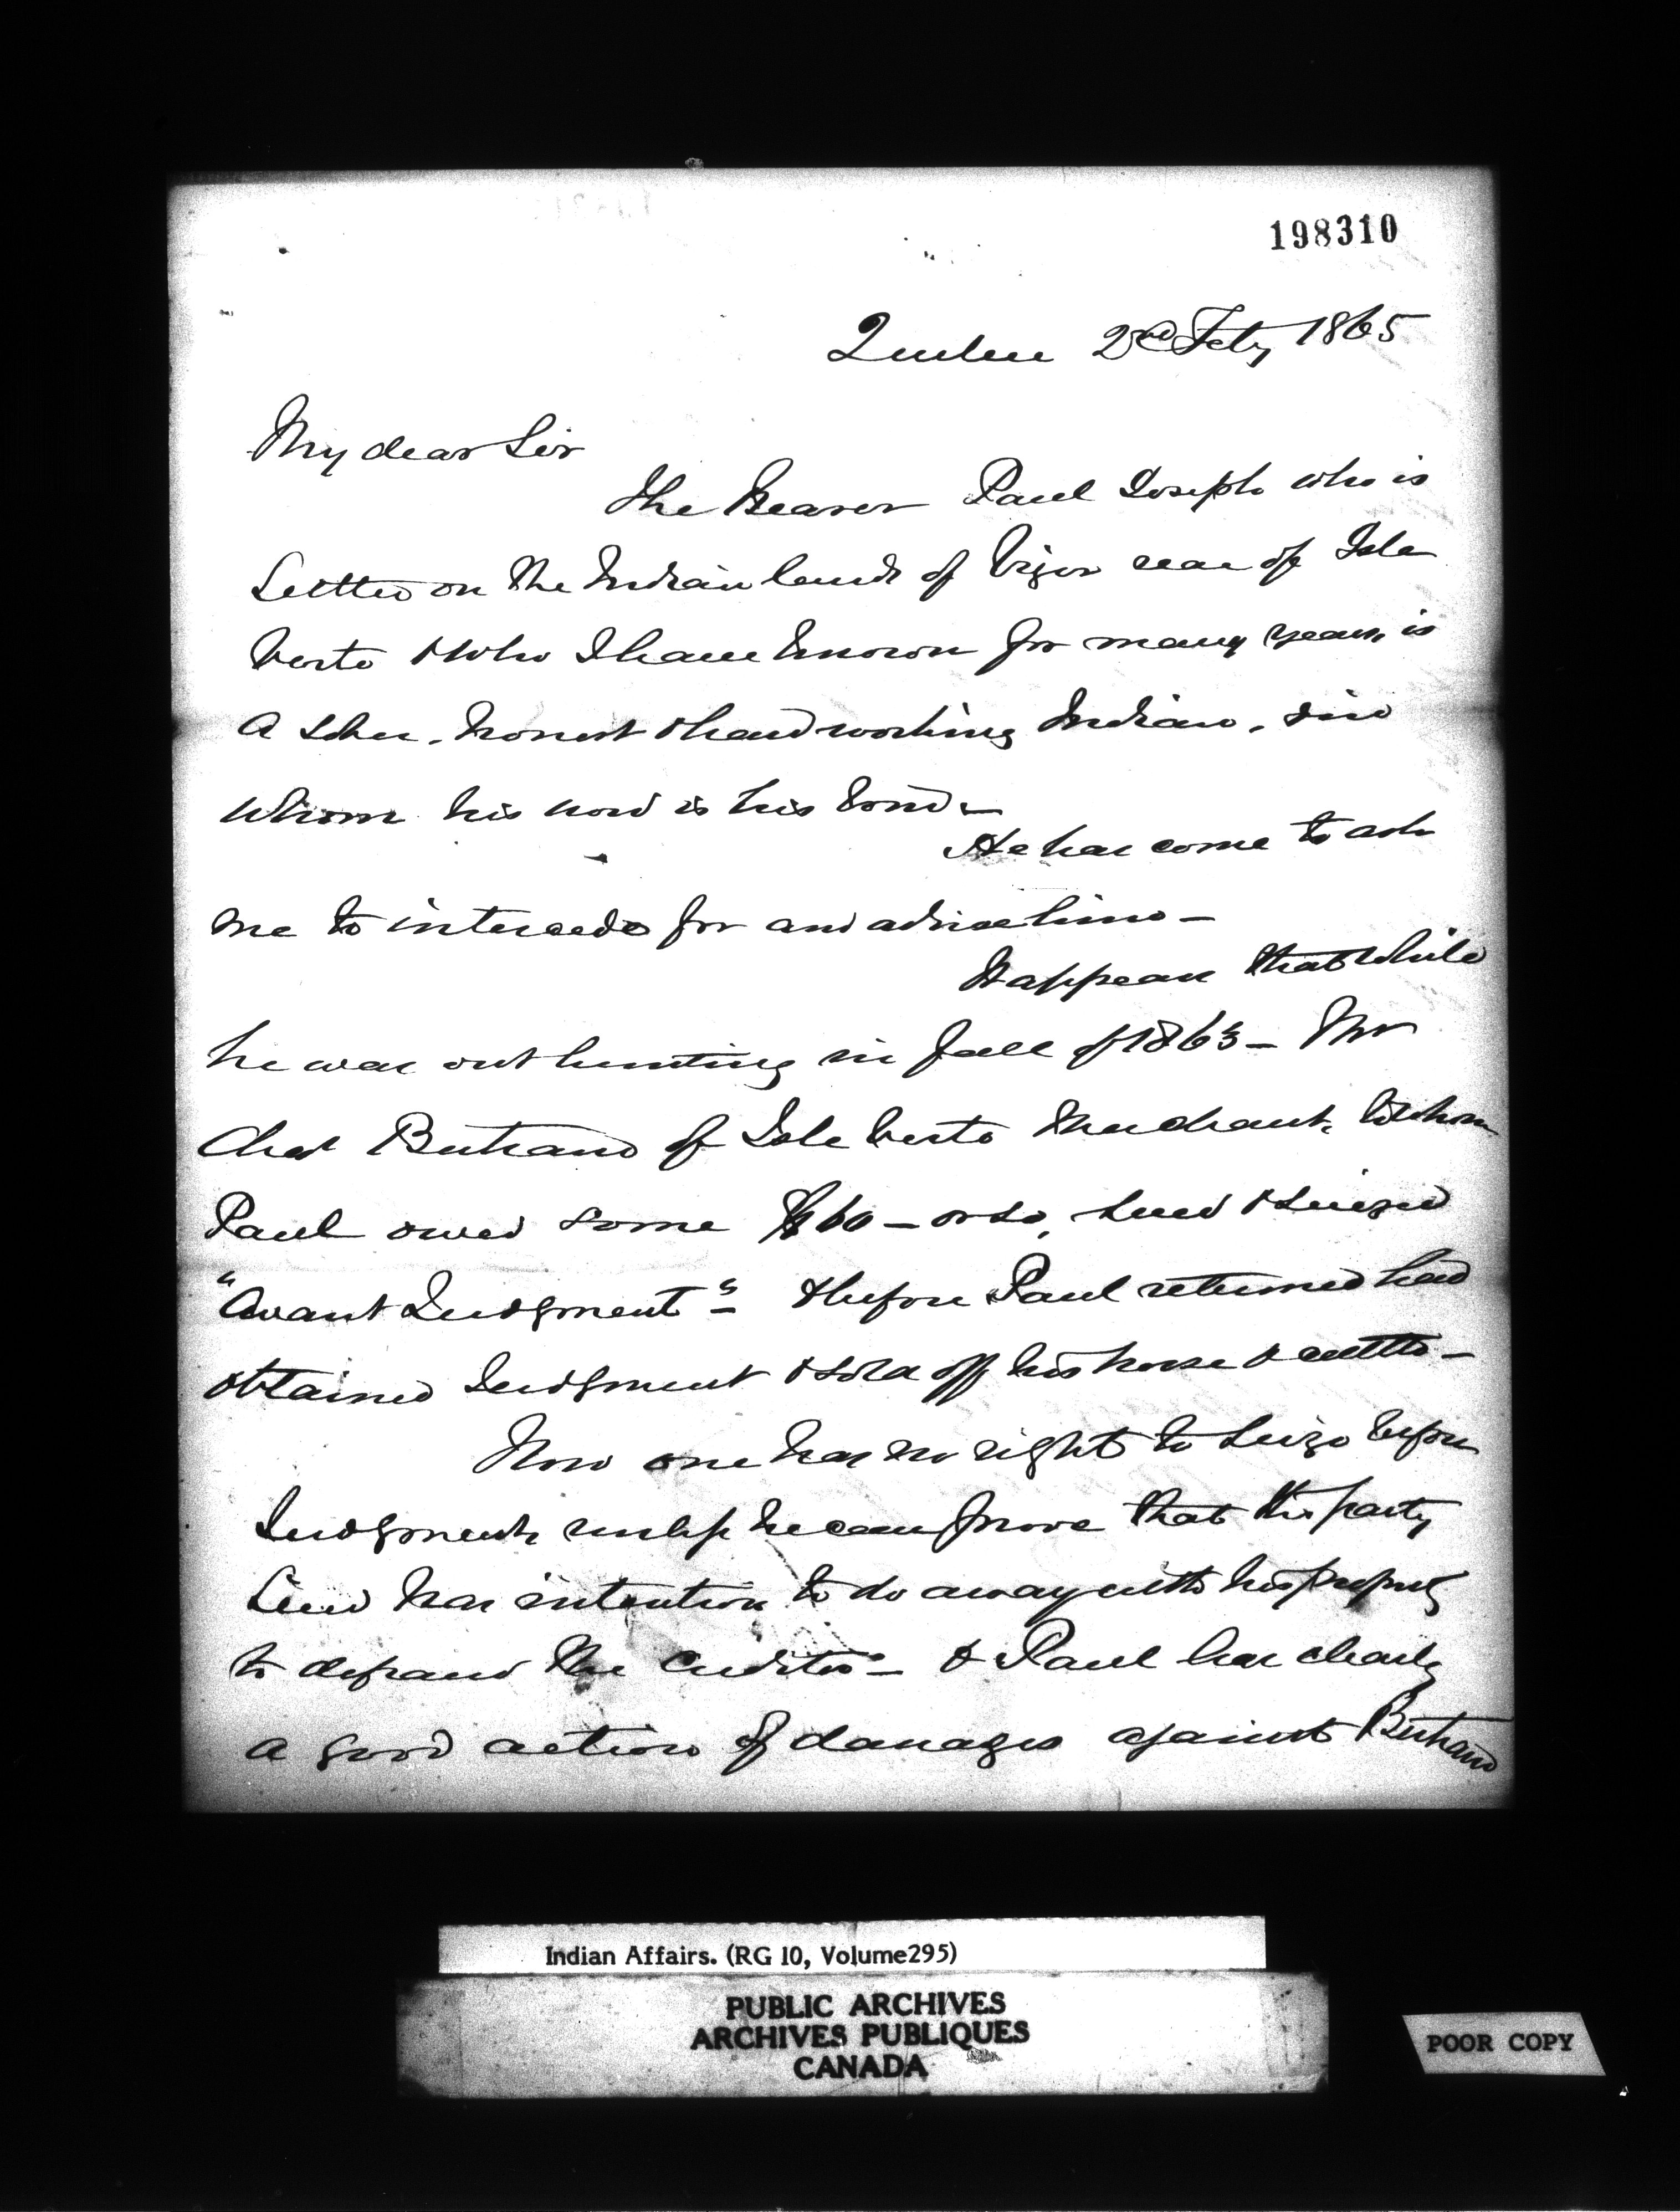 198310
Quebec 2nd Feby 1865
My dear Sir
The Bearer Paul Joseph who is
Settled on the Indian lands of Viger rear of Isle
Verte & who I have known for many years, is
a sober, honest & hard working Indian,
whom his word is his bond –
He has come to ask
me to intercede for and advise him –
It appears that while
he was out hunting in fall of 1863 – Mr
Chas Bertrand of Isle Verte Merchant, to whom
Paul owed some $60 – or so, sued & seized
"Avant Judgment" – & before Paul returned had
obtained Judgment & sold off his horse & cattle –
Now one has no right to seize before
Judgment, unless he can prove that the party
sued has intention to do away with his property
to defraud the Creditor – & Paul has clearly
a good action of damages against Bertrand
Indian Affairs. (RG 10, Volume295)
PUBLIC ARCHIVES
ARCHIVES PUBLIQUES
CANADA
POOR COPY